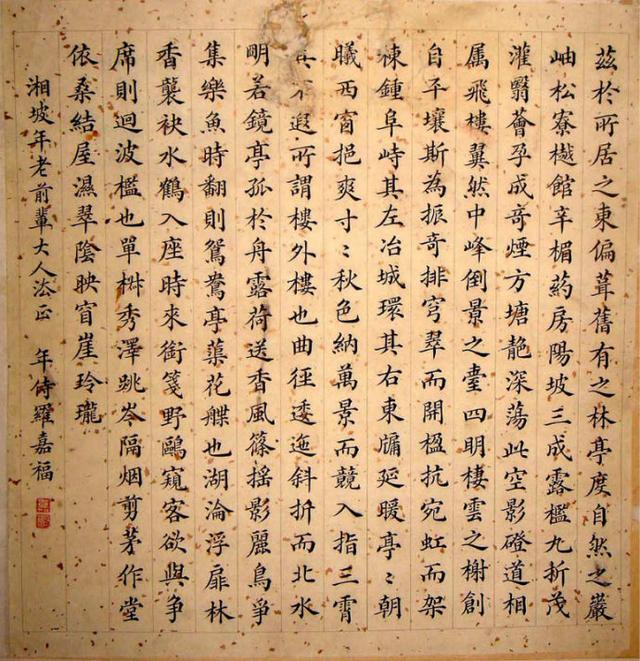 茲於所居之東偏葺舊有之林亭度自然之巖
岫松寮檖館辛楣药房陽坡三成露檻九折茂
灌翳薈孕成奇煙方塘靘深蕩此空影磴道相
属飛樓翼然中峰倒景之臺四明棲雲之榭創
自平壤斯為振奇排穹翠而開楹抗宛虹而架
棟鍾阜峙其左冶城環其右東牖延暖亭〻朝
曦西窗挹爽寸〻秋色納萬景而競入指三霄
其不遐所謂樓外樓也曲徑逶迤斜折而北水
明若鏡亭孤於舟露荷送香風篠揺影麗鳥爭
集樂魚時翻則鴛鴦亭蕖花艓也湖淪浮扉林
香襲袂水鶴入座時來銜箋野鷗窺客欲與争
席則迴波檻也單椒秀澤跳岑隔烟剪茅作堂
依桑結屋濕翠陰映窅崖玲瓏
湘坡年老前輩大人法正 年侍羅嘉福